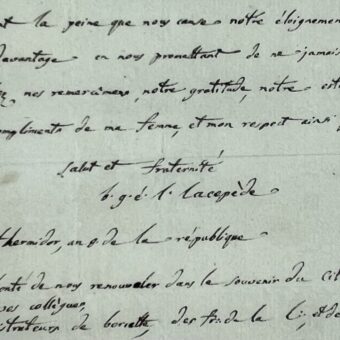 t la peine que nous cause notre éloignement
davantage en nous promettant de ne jamais
nos remercimens, notre gratitude, notre est
ompliments de ma femme, et mon respect ainsi
salut et fraternité
b. g. é. l. lacepède
thermidor, an de la république
de nous renouveler dans le souvenir du cit
os collègues,
istrateurs de des de la et de